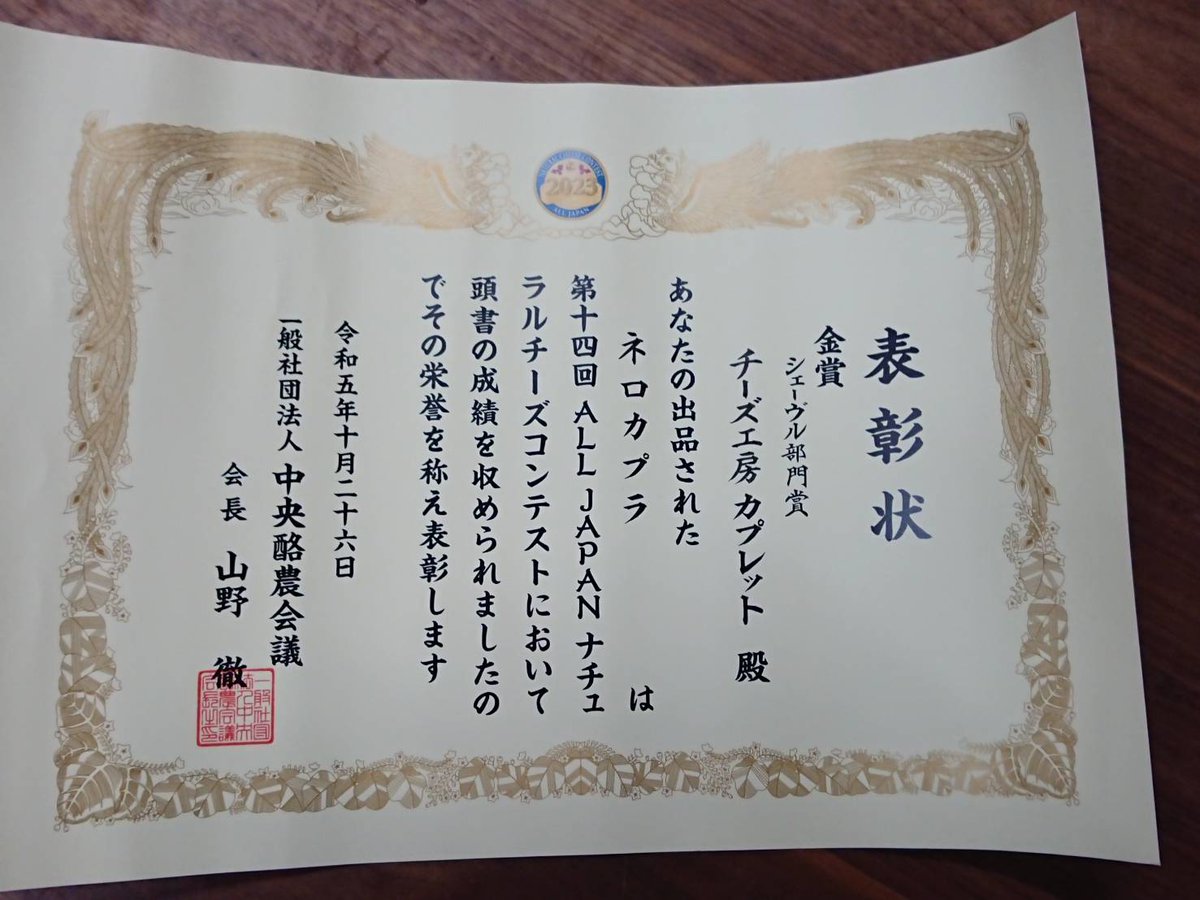 表彰状
金賞
シェーヴル部門賞
チーズ工房 カプレット 殿
あなたの出品された
ネロカプラ は
第十四回 ALL JAPAN ナチュ
ラルチーズコンテストにおいて
頭書の成績を収められましたの
でその栄誉を称え表彰します
令和五年十月二十六日
一般社団法人 中央酪農会議
会長 山野 徹
2023
ALL JAPAN